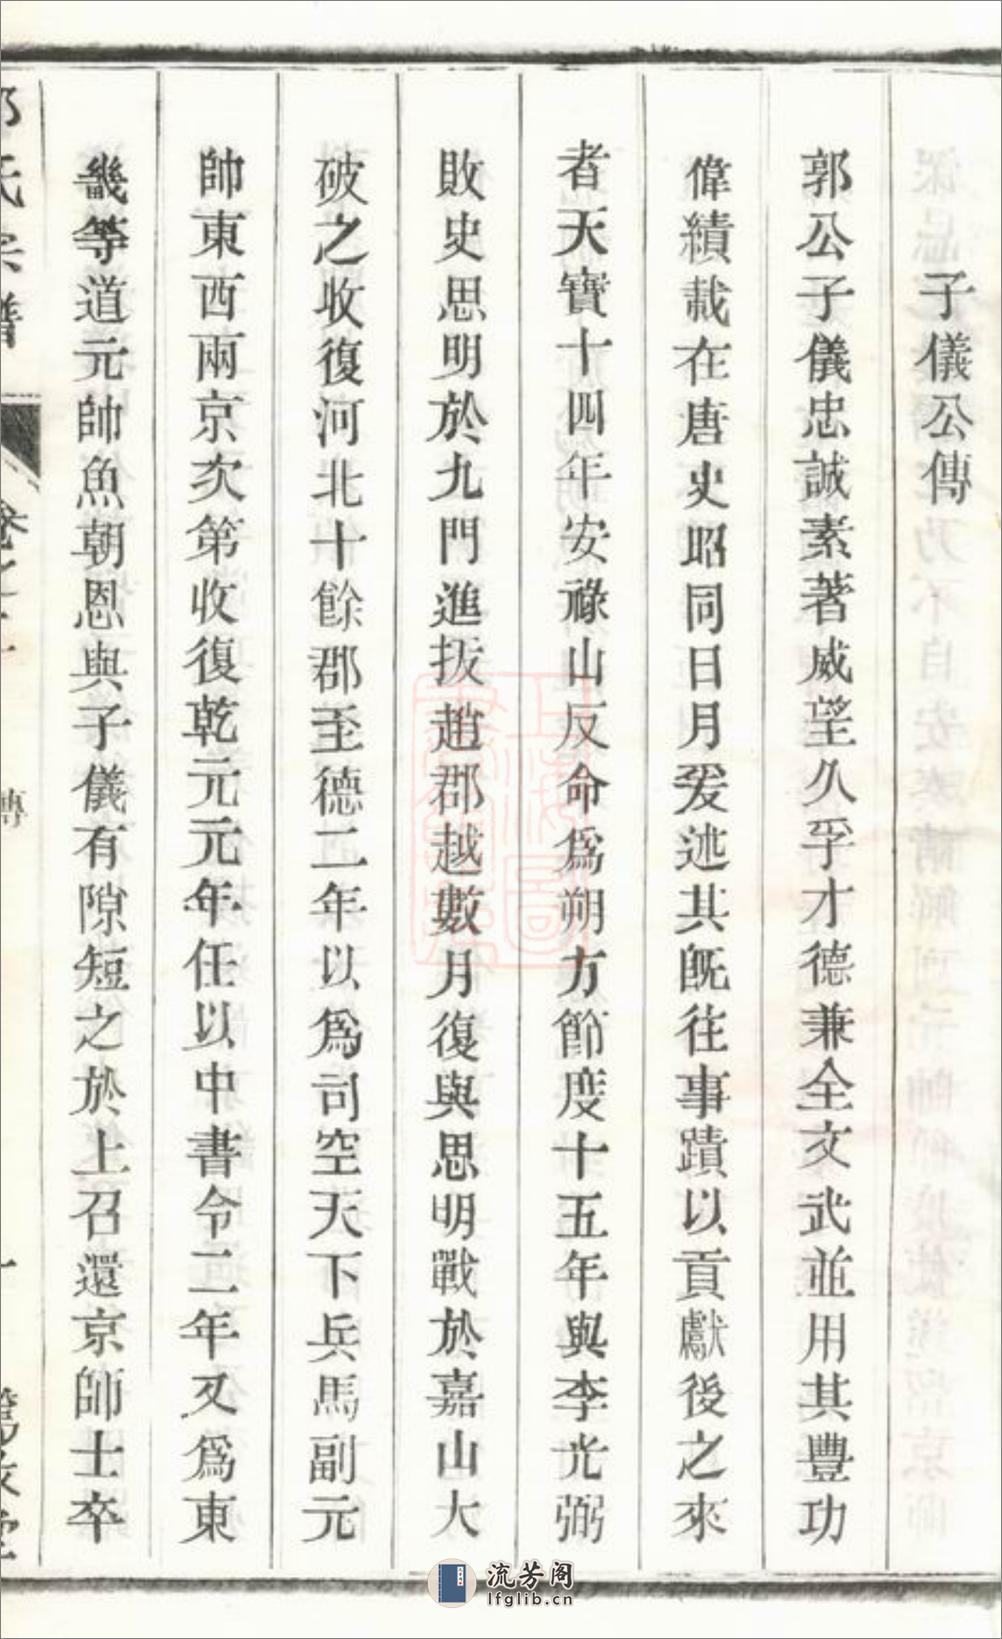 子儀公傳
郭公子儀忠誠素著威望久孚才德兼全文武並用其豐功
偉績載在唐史昭同日月爰述其旣往事蹟以貢獻後之來
者天寶十四年安祿山反命爲朔方節度十五年與李光弼
敗史思明於九門進拔趙郡越數月復與思明戰於嘉山大
破之收復河北十餘郡至德二年以爲司空天下兵馬副元
帥東西兩京次第收復乾元元年任以中書令二年又爲東
畿等道元帥魚朝恩與子儀有隙短之於上召還京師士卒
氏宗譜
傳
流芳阁
lfglib.cn